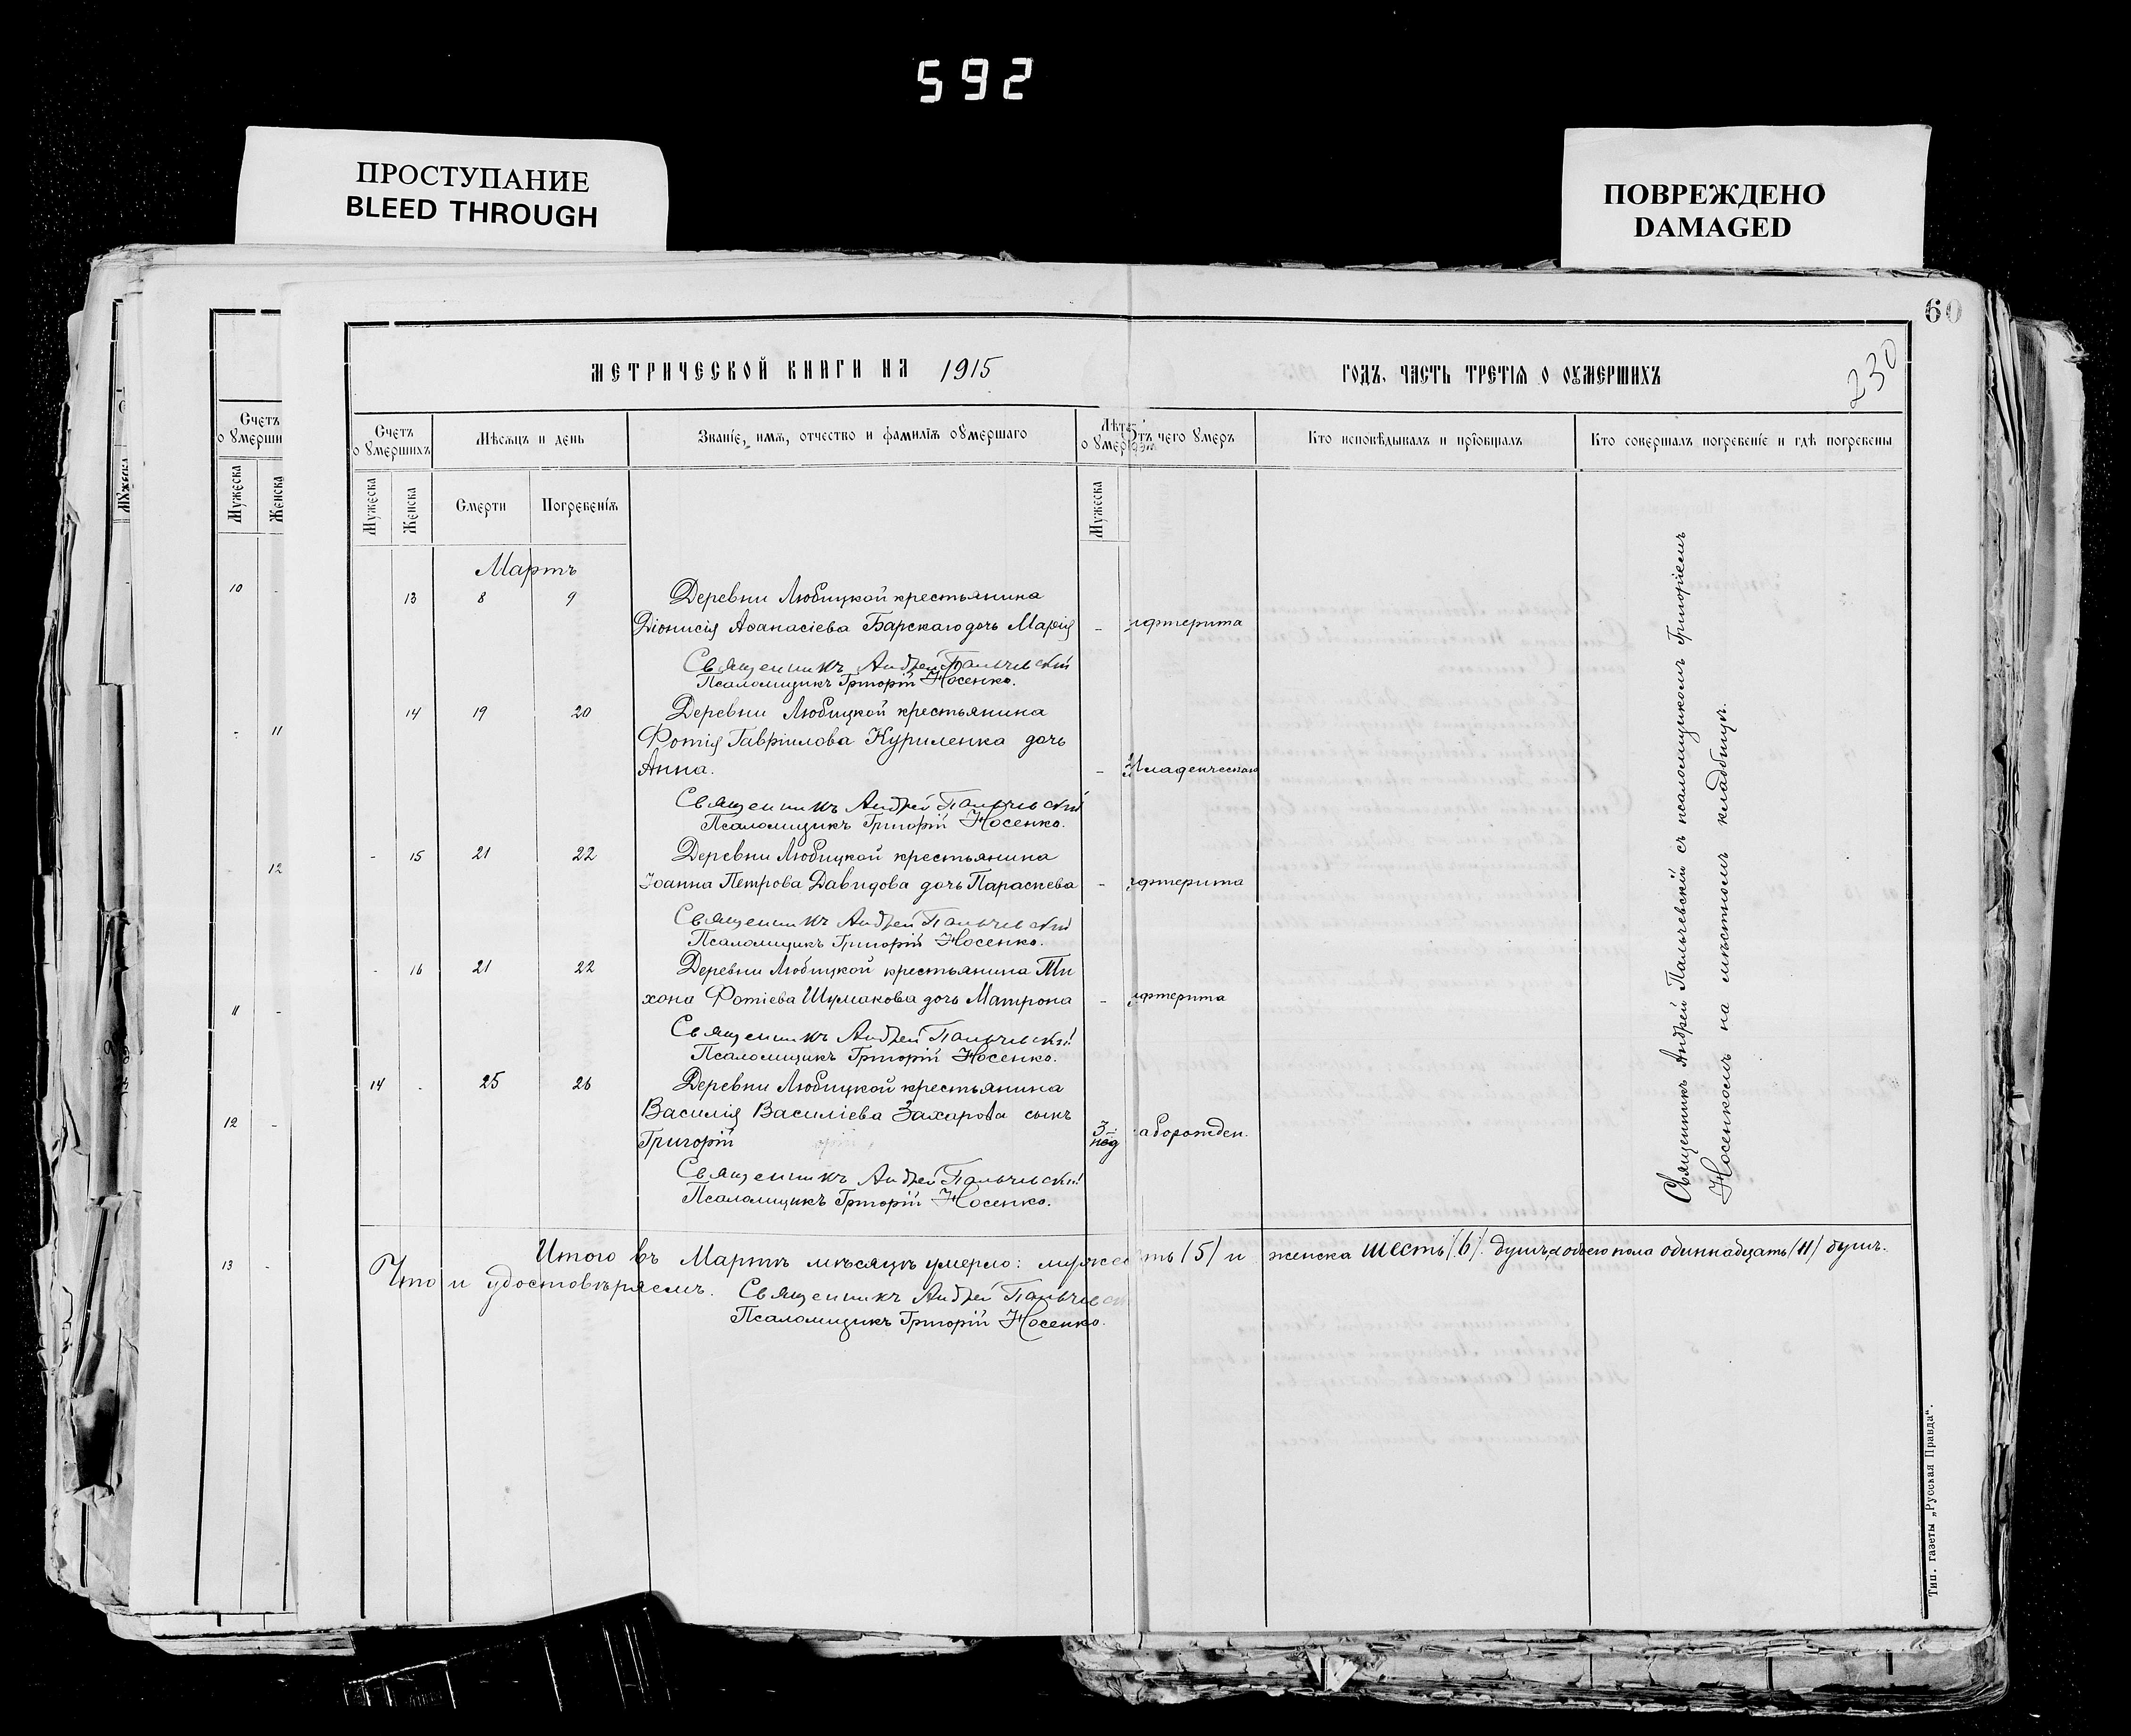 592
ПРОСТУПАНИЕ
BLEED THROUGH
ПОВРЕЖДЕНО
DAMAGED
60
230
МЕТРИЧЕСКОЙ КНИГИ НА 1915
ГОДЪ, ЧАСТЬ ТРЕТІЯ О ОУМЕРШИХЪ
Счетъ
о умерши
Мужеска
Женска
10 -
- 11
- 12
11 -
12 -
13 -
Счетъ
о умершихъ
Мѣсяцъ и день
Званіе, имя, отчество и фамилія оумершаго
Лѣта
о умер
отъ чего умеръ
Кто исповѣдывалъ и пріобщалъ
Кто совершалъ погребеніе и гдѣ погребены
Мужеска
Женска
Смерти
Погребенія
Мужеска
Мартъ
13 8 9 Деревни Любицкой крестьянина
Діонисія Аѳанасіева Барскаго дочь Марія - ифтерита
Священникъ Андрей Пальчевскій
Псаломщикъ Григорій Носенко.
14 19 20 Деревни Любицкой крестьянина
Фотія Гавріилова Куриленка дочь
Анна. - Младенческаго
Священникъ Андрей Пальчевскій
Псаломщикъ Григорій Носенко.
- 15 21 22 Деревни Любицкой крестьянина
Іоанна Петрова Давидова дочь Параскева - ифтерита
Священникъ Андрей Пальчевскій
Псаломщикъ Григорій Носенко.
- 16 21 22 Деревни Любицкой крестьянина Ти
хона Фотіева Шумакова дочь Матрона - ифтерита
Священникъ Андрей Пальчевскій
Псаломщикъ Григорій Носенко.
14 - 25 26 Деревни Любицкой крестьянина
Василія Василіева Захарова сынъ
Григорій 3 нед аборожден.
Священникъ Андрей Пальчевскій
Псаломщикъ Григорій Носенко.
Священникъ Андрей Пальчевскій съ псаломщикомъ Григоріемъ
Носенкомъ на мѣстномъ кладбищѣ.
Итого въ Мартѣ мѣсяцѣ умерло: мужес ть /5/ и женска шесть /6/. душъ, а обоего пола одиннадцать /11/ душъ.
Что и удостовѣряемъ. Священникъ Андрей Пальчевск
Псаломщикъ Григорій Носенко.
Тип. газеты „Русская Правда“.